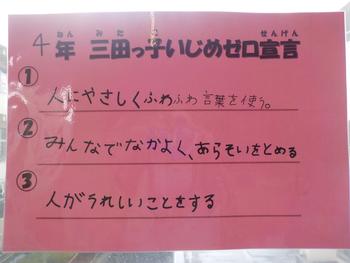 ねん みた こ せんげん
4年 三田っ子いじめゼロ宣言
① 人にやさしくふわふわ言葉を使う。
② みんなでなかよく、あらそいをとめる
③ 人がうれしいことをする